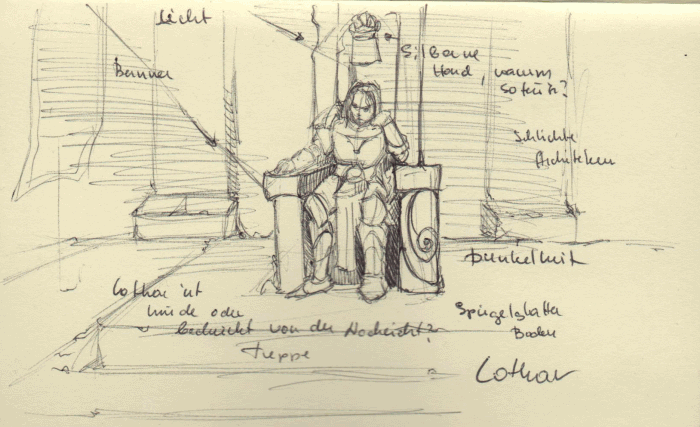 Licht
Banner
Silberne
Hand, warum
so früh?
Schlichte
Architektur
Dunkelheit
Lothar ist
müde oder
bedrückt von der Nachricht?
Treppe
Spiegelglatter
Boden
Lothar